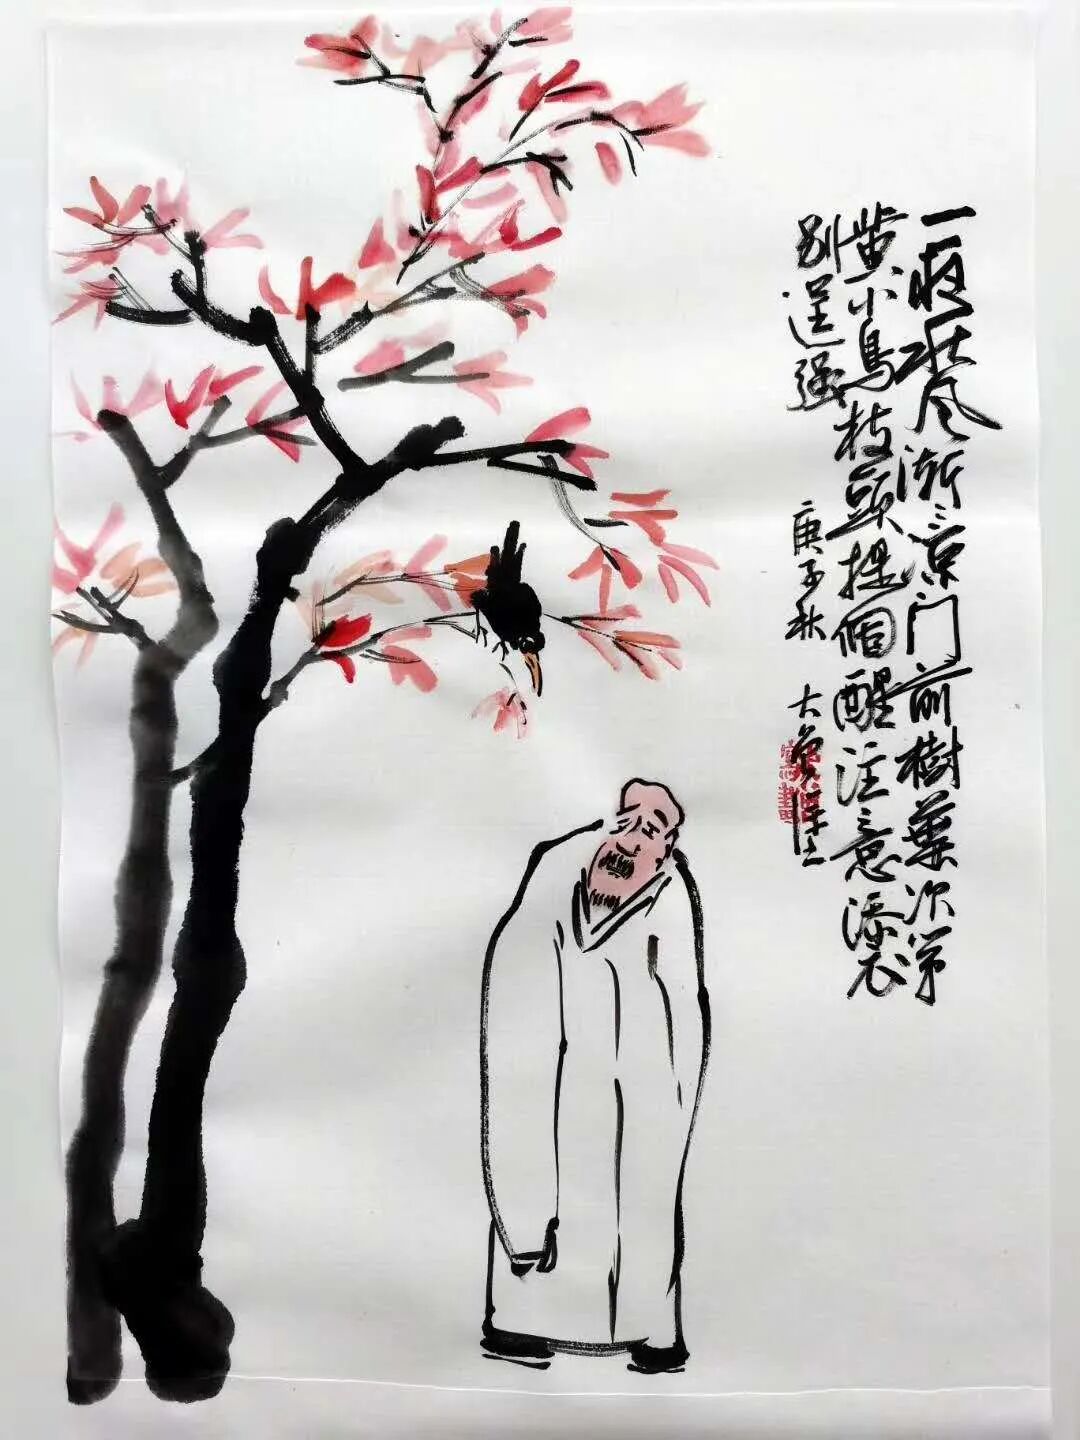 一夜秋风渐渐凉门前樹葉次第
黄小鳥枝頭提個醒注意添衣
别逞强
庚子秋
大魚